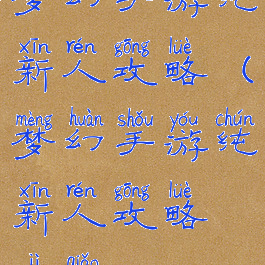 梦幻手游纯
xīn rén gōng lüè
新人攻略(
mèng huàn shǒu yóu chún
梦幻手游纯
xīn rén gōng lüè
新人攻略